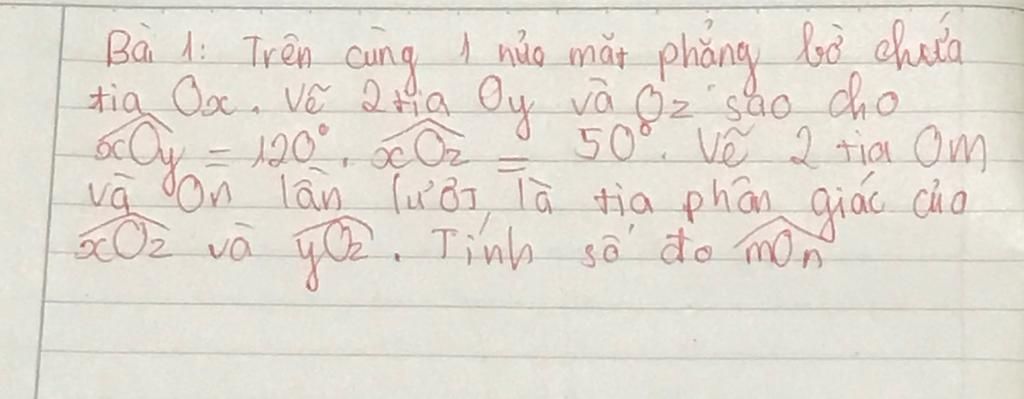 Bài 1: Trên cùng 1 nửa mặt phẳng bờ chứa
tia Ox. Vẽ 2 tia Oy và Oz sao cho
xOy = 120°. xOz = 50°. Vẽ 2 tia Om
và On lần lượt là tia phân giác của
xOz và yOz. Tính số đo mOn